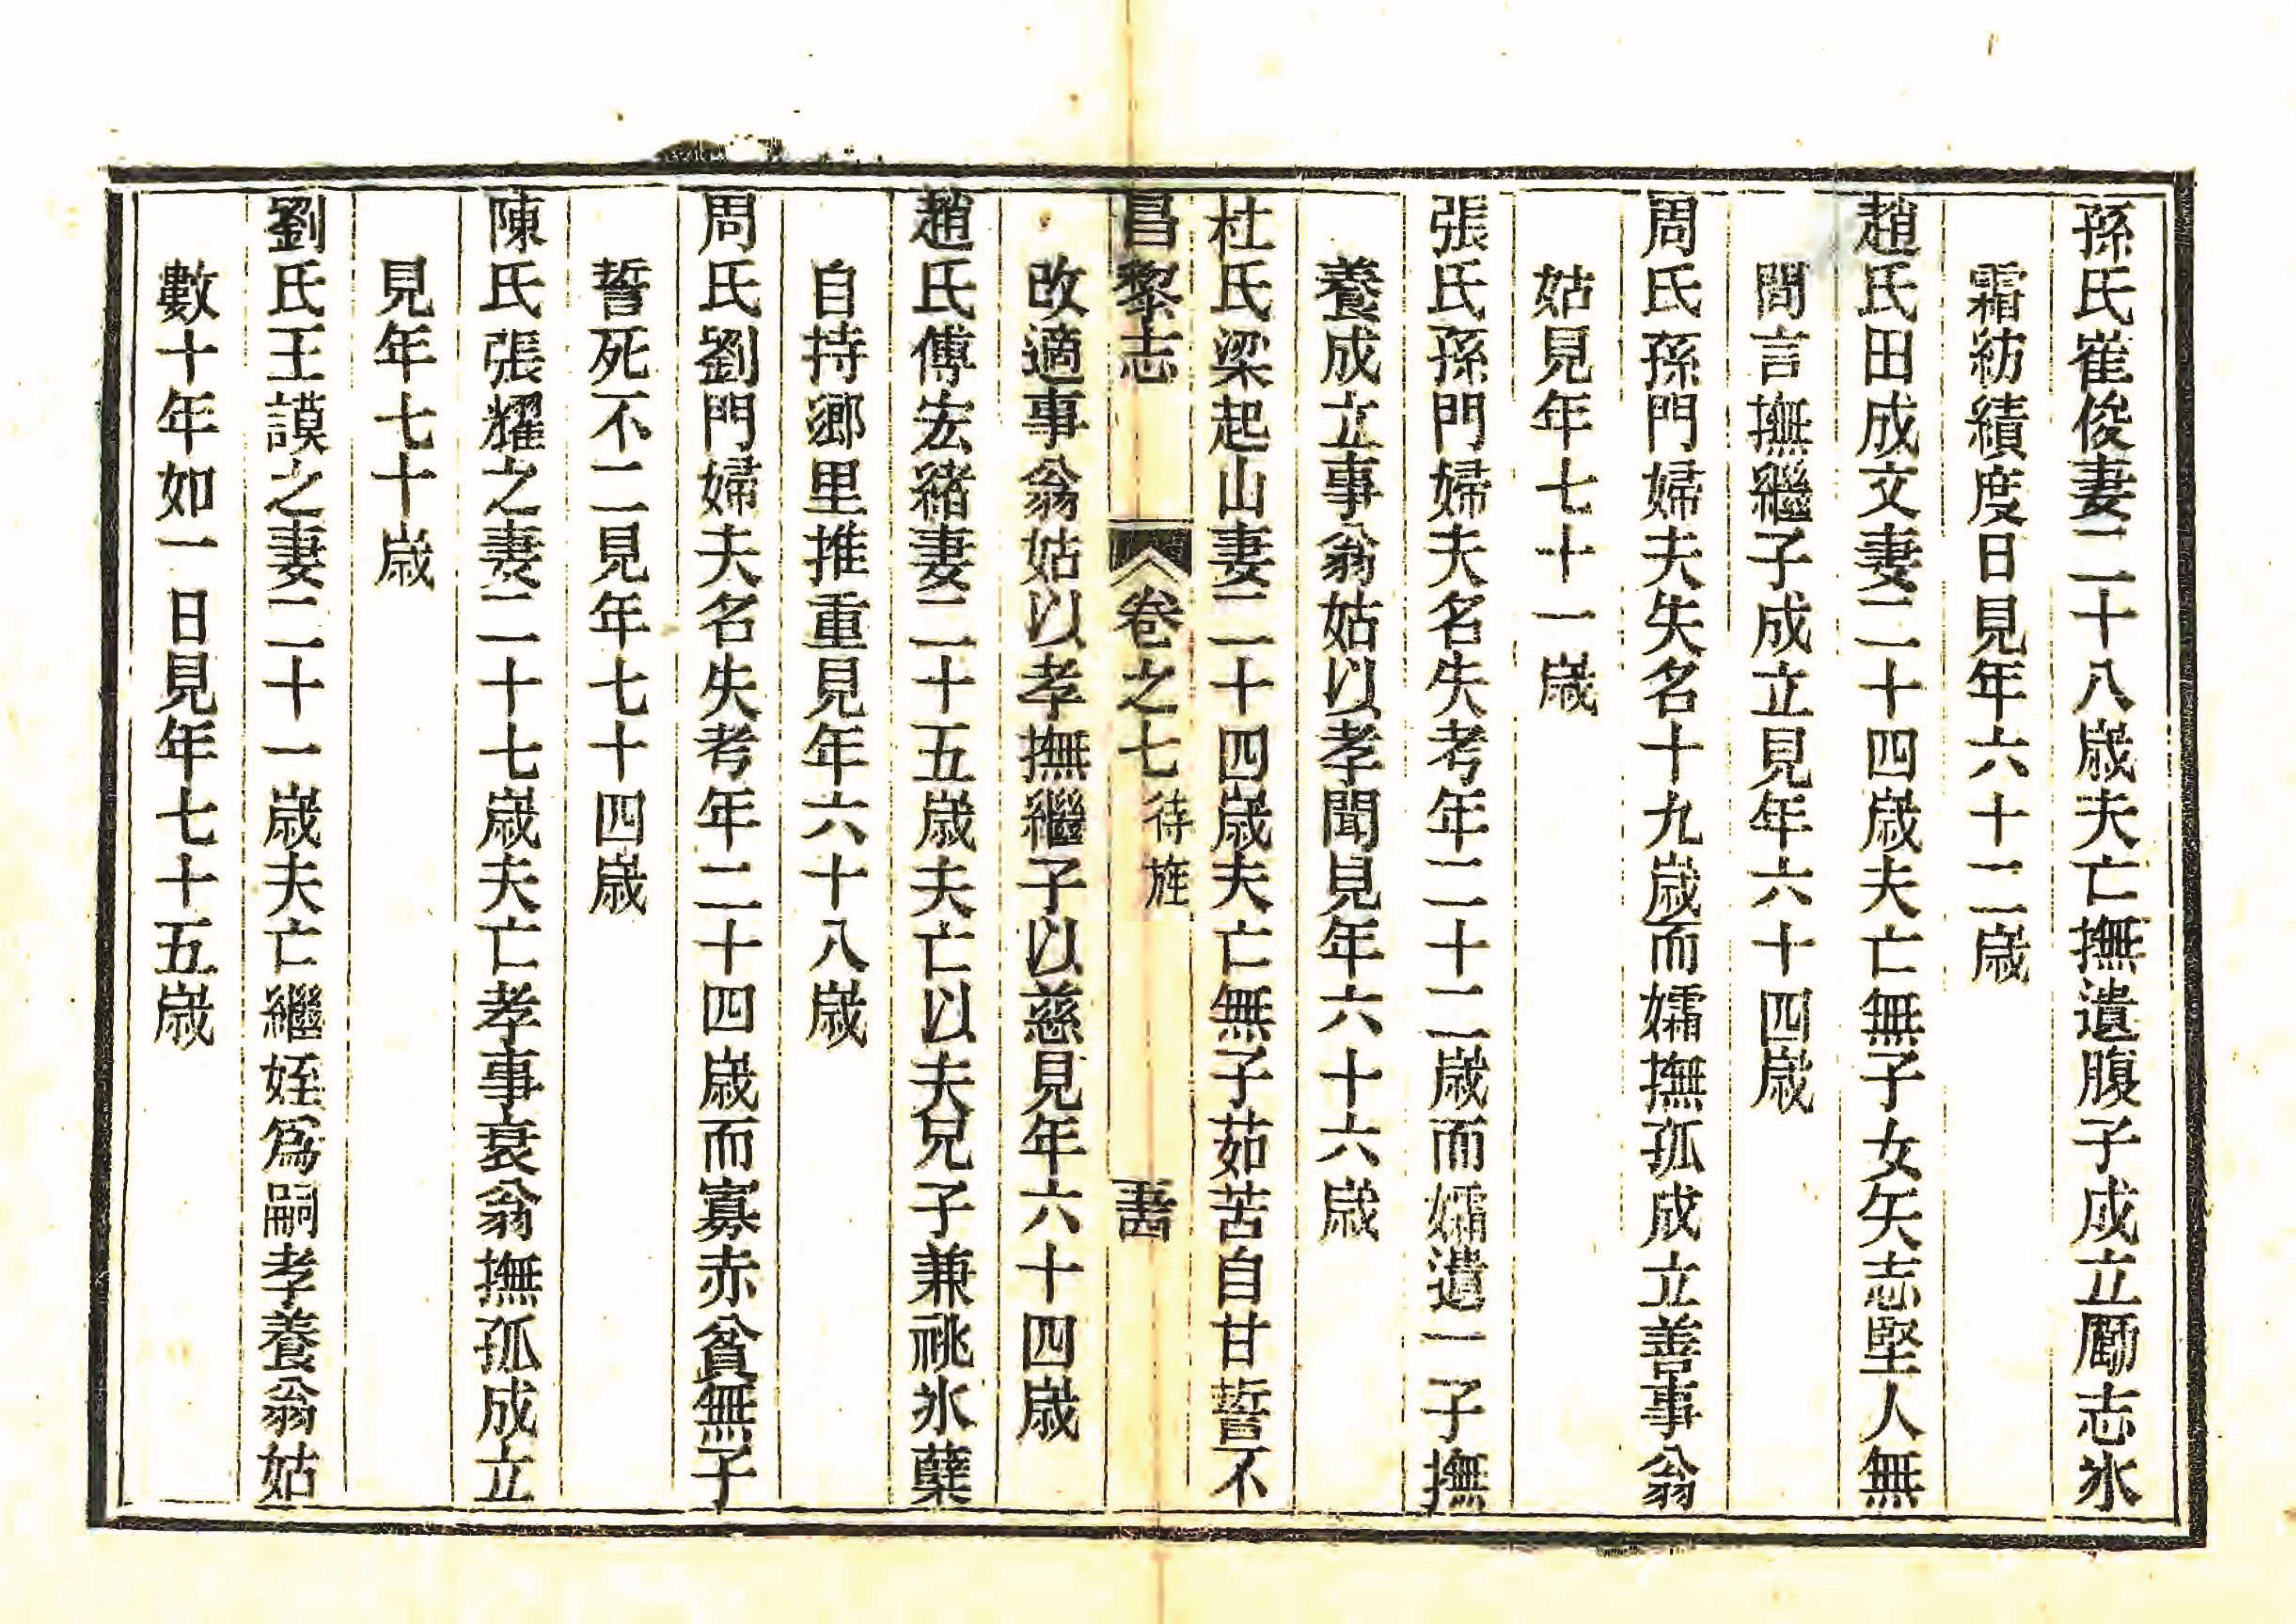 孫氏崔俊妻二十八歲夫亡撫遺腹子成立勵志氷
霜紡績度日見年六十二歲
趙氏田成文妻二十四歲夫亡無子女矢志堅人無
間言撫繼子成立見年六十四歲
周氏孫門婦夫失名十九歲而孀撫孤成立善事翁
姑見年七十一歲
張氏孫門婦夫名失考年二十二歲而孀遺一子撫
養成立事翁姑以孝聞見年六十六歲
杜氏梁起山妻二十四歲夫亡無子茹苦自甘誓不
昌黎志 卷之七 待旌 五十四
改適事翁姑以孝撫繼子以慈見年六十四歲
趙氏傅宏緒妻二十五歲夫亡以夫兄子兼祧氷蘗
自持鄉里推重見年六十八歲
周氏劉門婦夫名失考年二十四歲而寡赤貧無子
誓死不二見年七十四歲
陳氏張耀之妻二十七歲夫亡孝事衰翁撫孤成立
見年七十歲
劉氏王謨之妻二十一歲夫亡繼姪爲嗣孝養翁姑
數十年如一日見年七十五歲